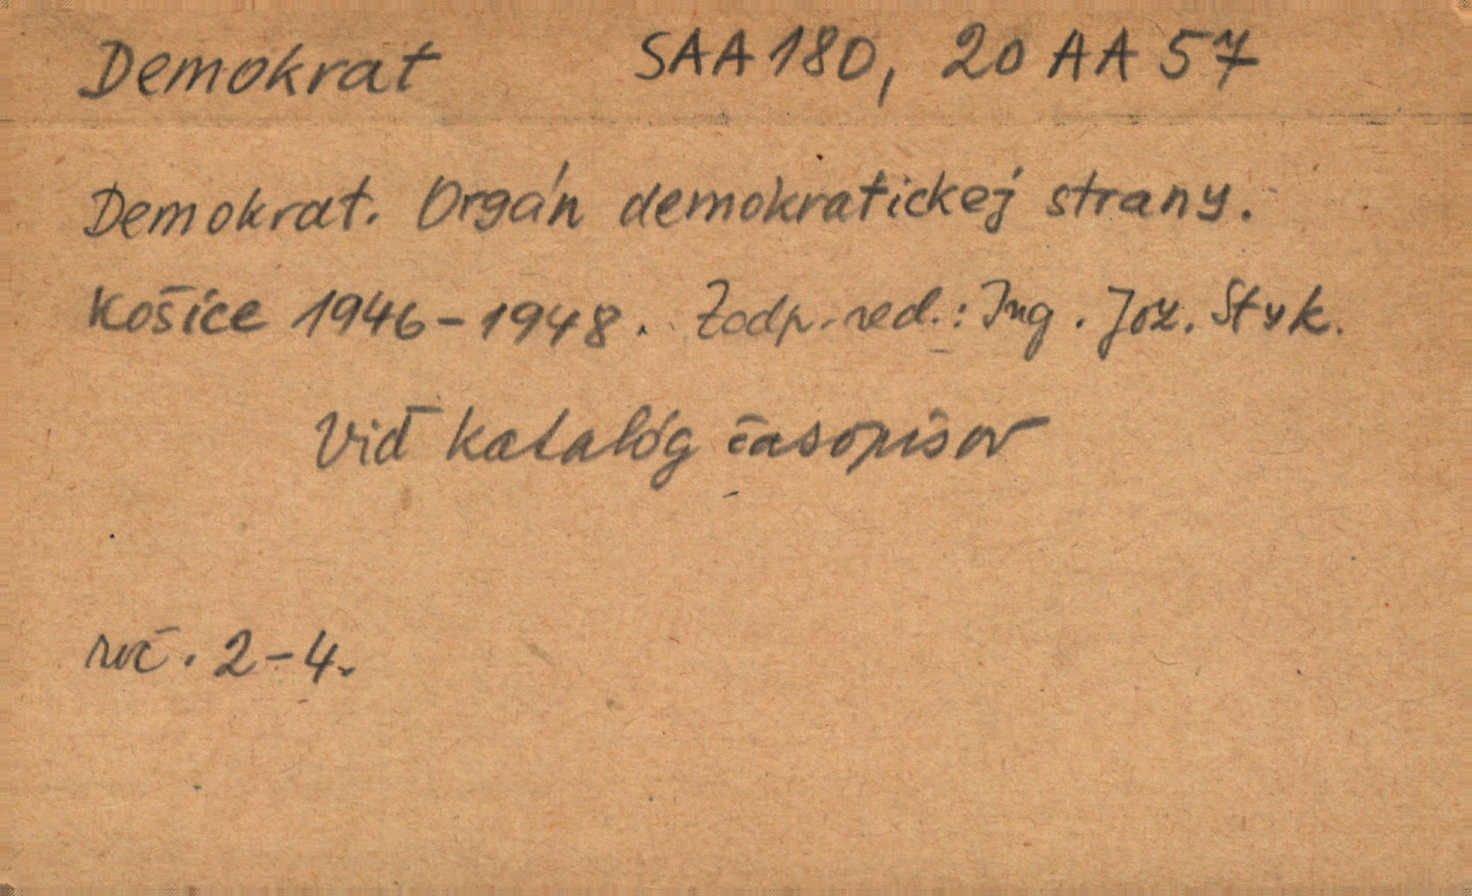 Demokrat SAA 180, 20 AA 57
Demokrat. Orgán demokratickej strany.
Košice 1946-1948. Zodp. red.: Ing. Joz. Styk.
Viď katalóg časopisov
roč. 2-4.